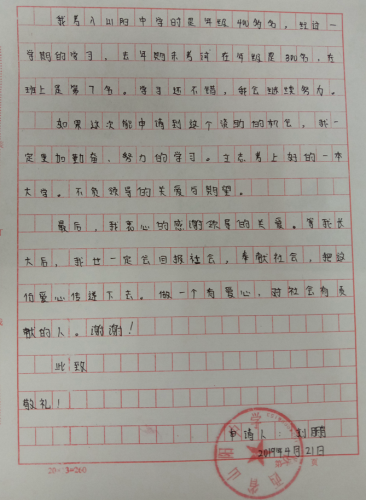 我考入山阳中学时是年级400多名，经过一
学期的学习，去年期末考试在年级是300名，在
班上是第7名。学习还不错，我会继续努力。
如果这次能申请到这个资助的机会，我一
定更加勤奋，努力的学习。立志考上好的一本
大学。不负领导的关爱与期望。
最后，我衷心的感谢领导的关爱。等我长
大后，我也一定会回报社会，奉献社会，把这
份爱心传递下去。做一个有爱心，对社会有贡
献的人。谢谢！
此致
敬礼！
申请人：刘
2019年4月21日